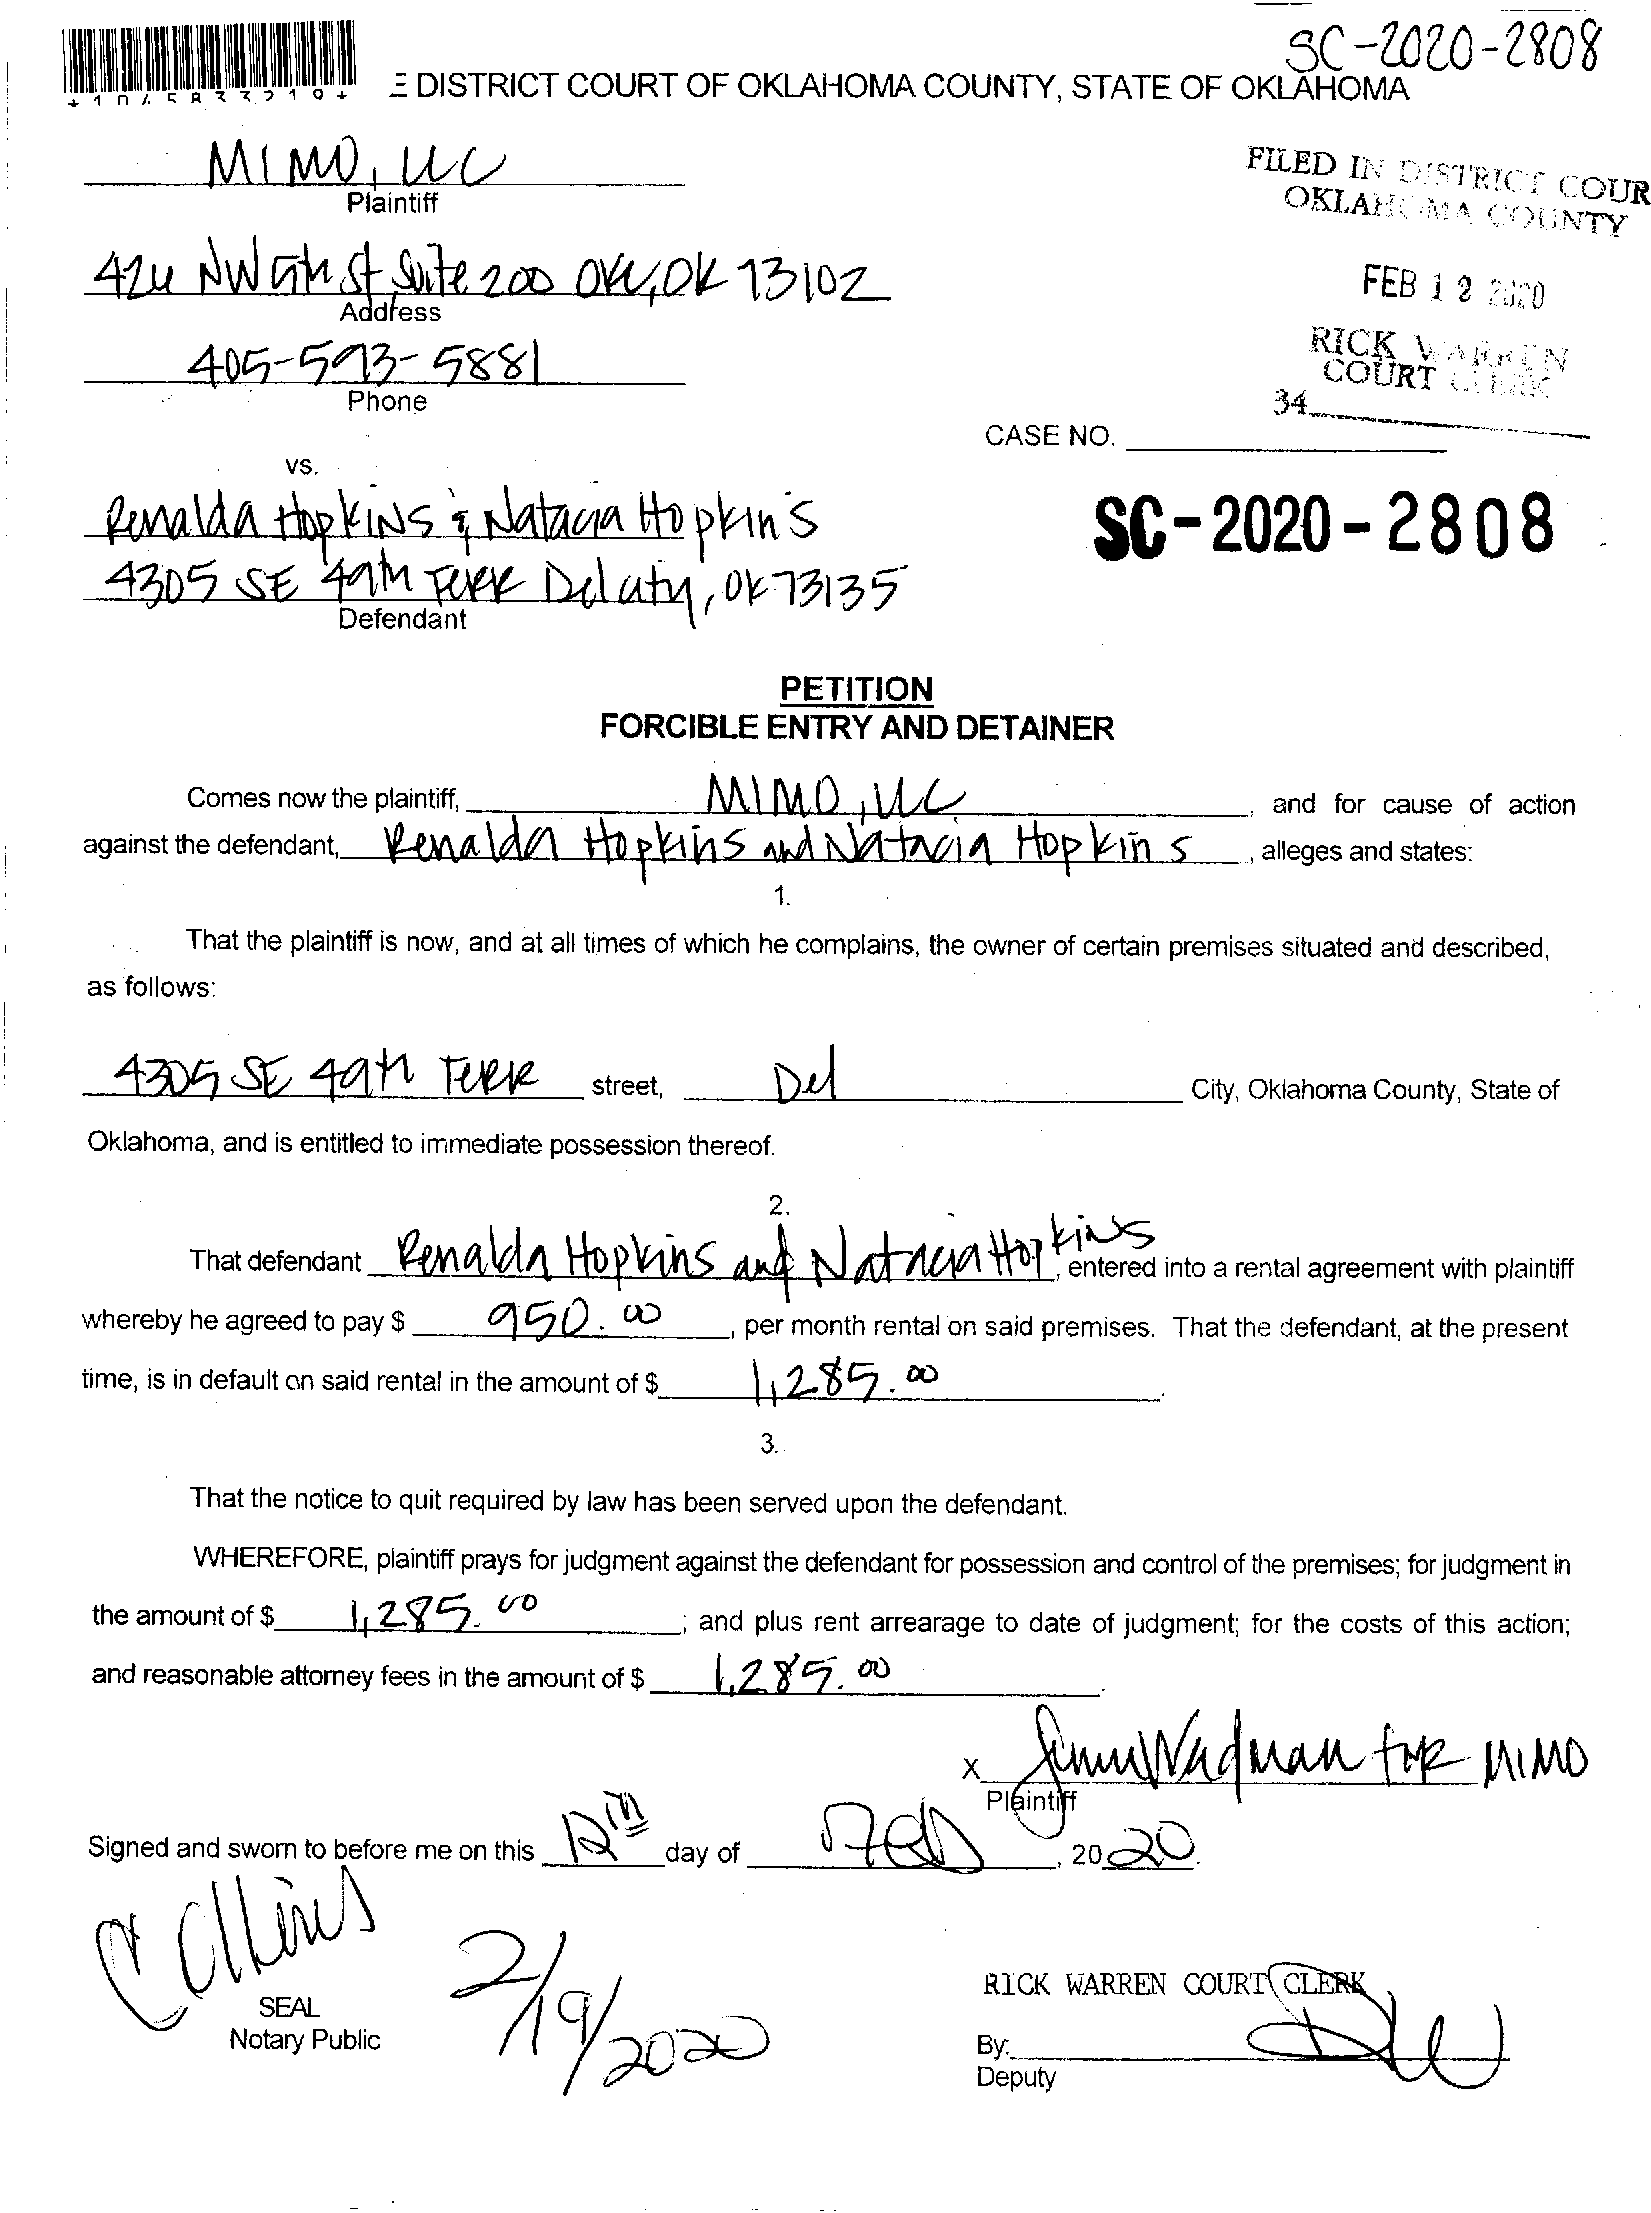 SC-2020-2808
E DISTRICT COURT OF OKLAHOMA COUNTY, STATE OF OKLAHOMA
MIMO, LLC
Plaintiff
FILED IN DISTRICT COUR
OKLAHOMA COUNTY
NW St Suite 200 OKC, OK 73102
Address
FEB 12 2020
RICK WARREN
COURT CLERK
405-593-5881
Phone
34
CASE NO.
vs.
Renalda Hopkins & Natacia Hopkins
SC-2020-2808
4305 SE 49th Terr Del city, OK 73135
Defendant
PETITION
FORCIBLE ENTRY AND DETAINER
Comes now the plaintiff, MIMO, LLC, and for cause of action
against the defendant, Renalda Hopkins and Natacia Hopkins, alleges and states:
1.
That the plaintiff is now, and at all times of which he complains, the owner of certain premises situated and described,
as follows:
4305 SE 49th Terr street, Del City, Oklahoma County, State of
Oklahoma, and is entitled to immediate possession thereof.
2.
That defendant Renalda Hopkins and Natacia Hopkins, entered into a rental agreement with plaintiff
whereby he agreed to pay $ 950.00, per month rental on said premises. That the defendant, at the present
time, is in default on said rental in the amount of $ 1,285.00.
3.
That the notice to quit required by law has been served upon the defendant.
WHEREFORE, plaintiff prays for judgment against the defendant for possession and control of the premises; for judgment in
the amount of $ 1,285.00; and plus rent arrearage to date of judgment; for the costs of this action;
and reasonable attorney fees in the amount of $ 1,285.00.
X for MIMO
Plaintiff
Signed and sworn to before me on this 12th day of Feb, 2020.
C Collins
SEAL
Notary Public
2/19/2020
RICK WARREN COURT CLERK
By:
Deputy